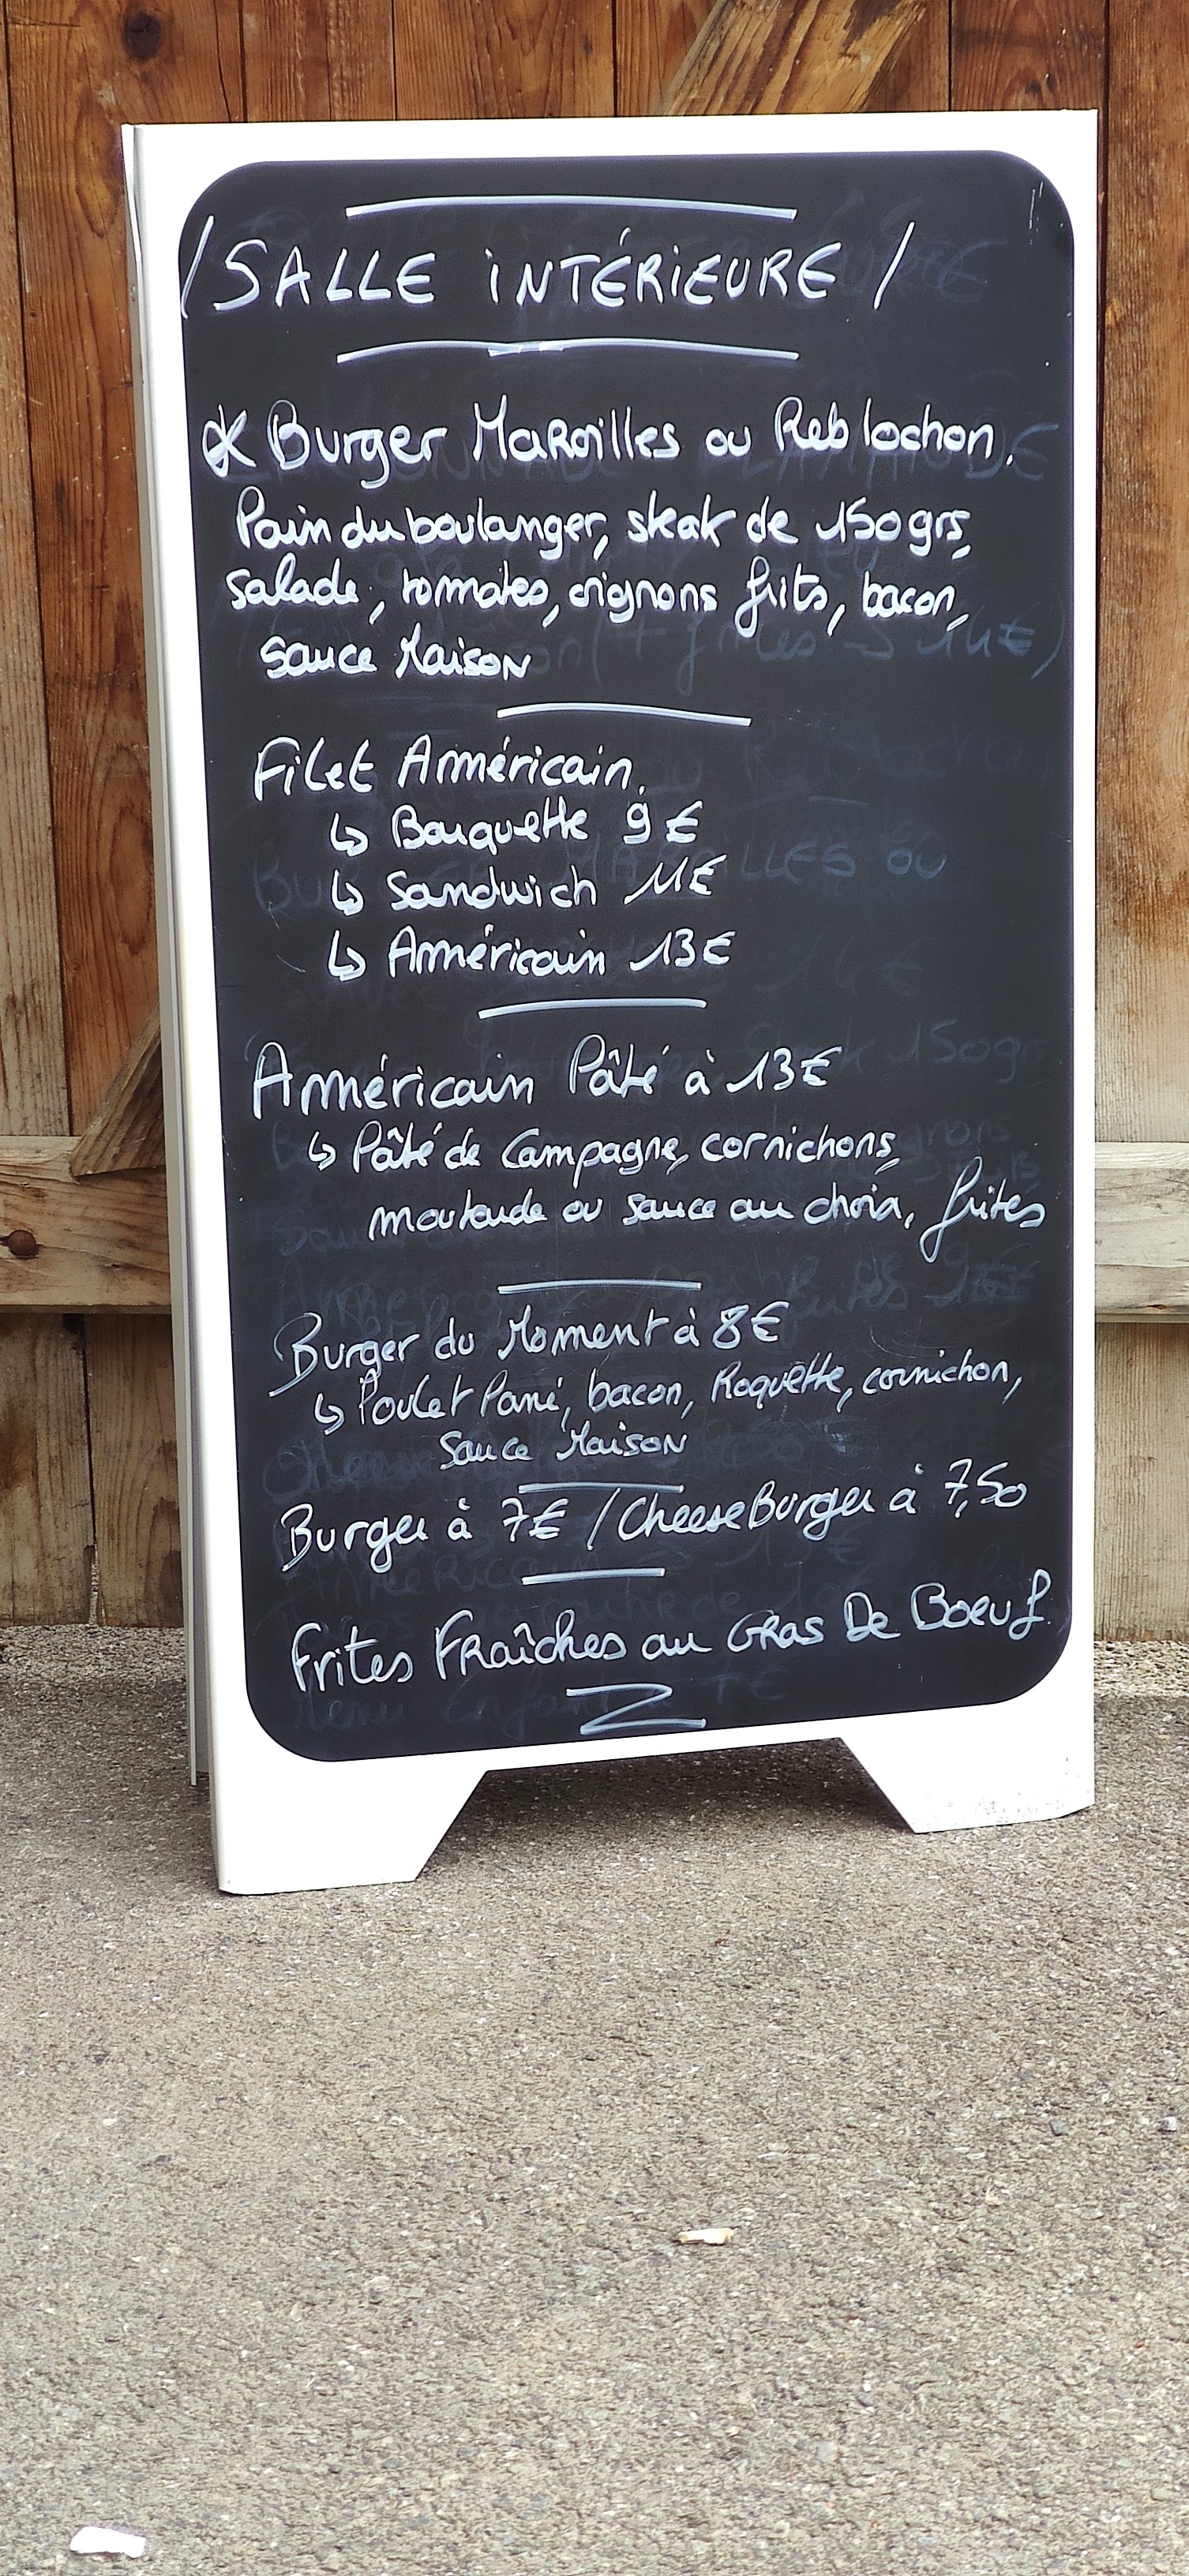 / SALLE INTÉRIEURE /
* Burger Maroilles ou Reblochon.
Pain du boulanger, steak de 150grs,
salade, tomates, oignons frits, bacon,
sauce Maison
Filet Américain.
↳ Barquette 9€
↳ Sandwich 11€
↳ Américain 13€
Américain Pâté à 13€
↳ Pâté de Campagne, cornichons,
moutarde ou sauce au choix, frites
Burger du Moment à 8€
↳ Poulet Pané, bacon, Roquette, cornichon,
Sauce Maison
Burger à 7€ / CheeseBurger à 7,50
Frites Fraîches au Gras De Boeuf.